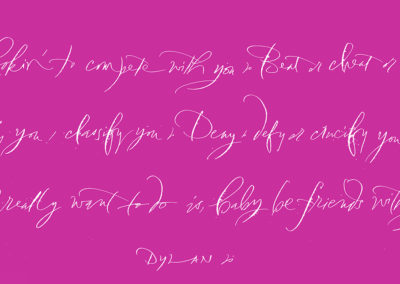 okin' to compete with you Beat or cheat or
you, classify you Deny, defy or crucify you
really want to do is, baby be friends with
DYLAN